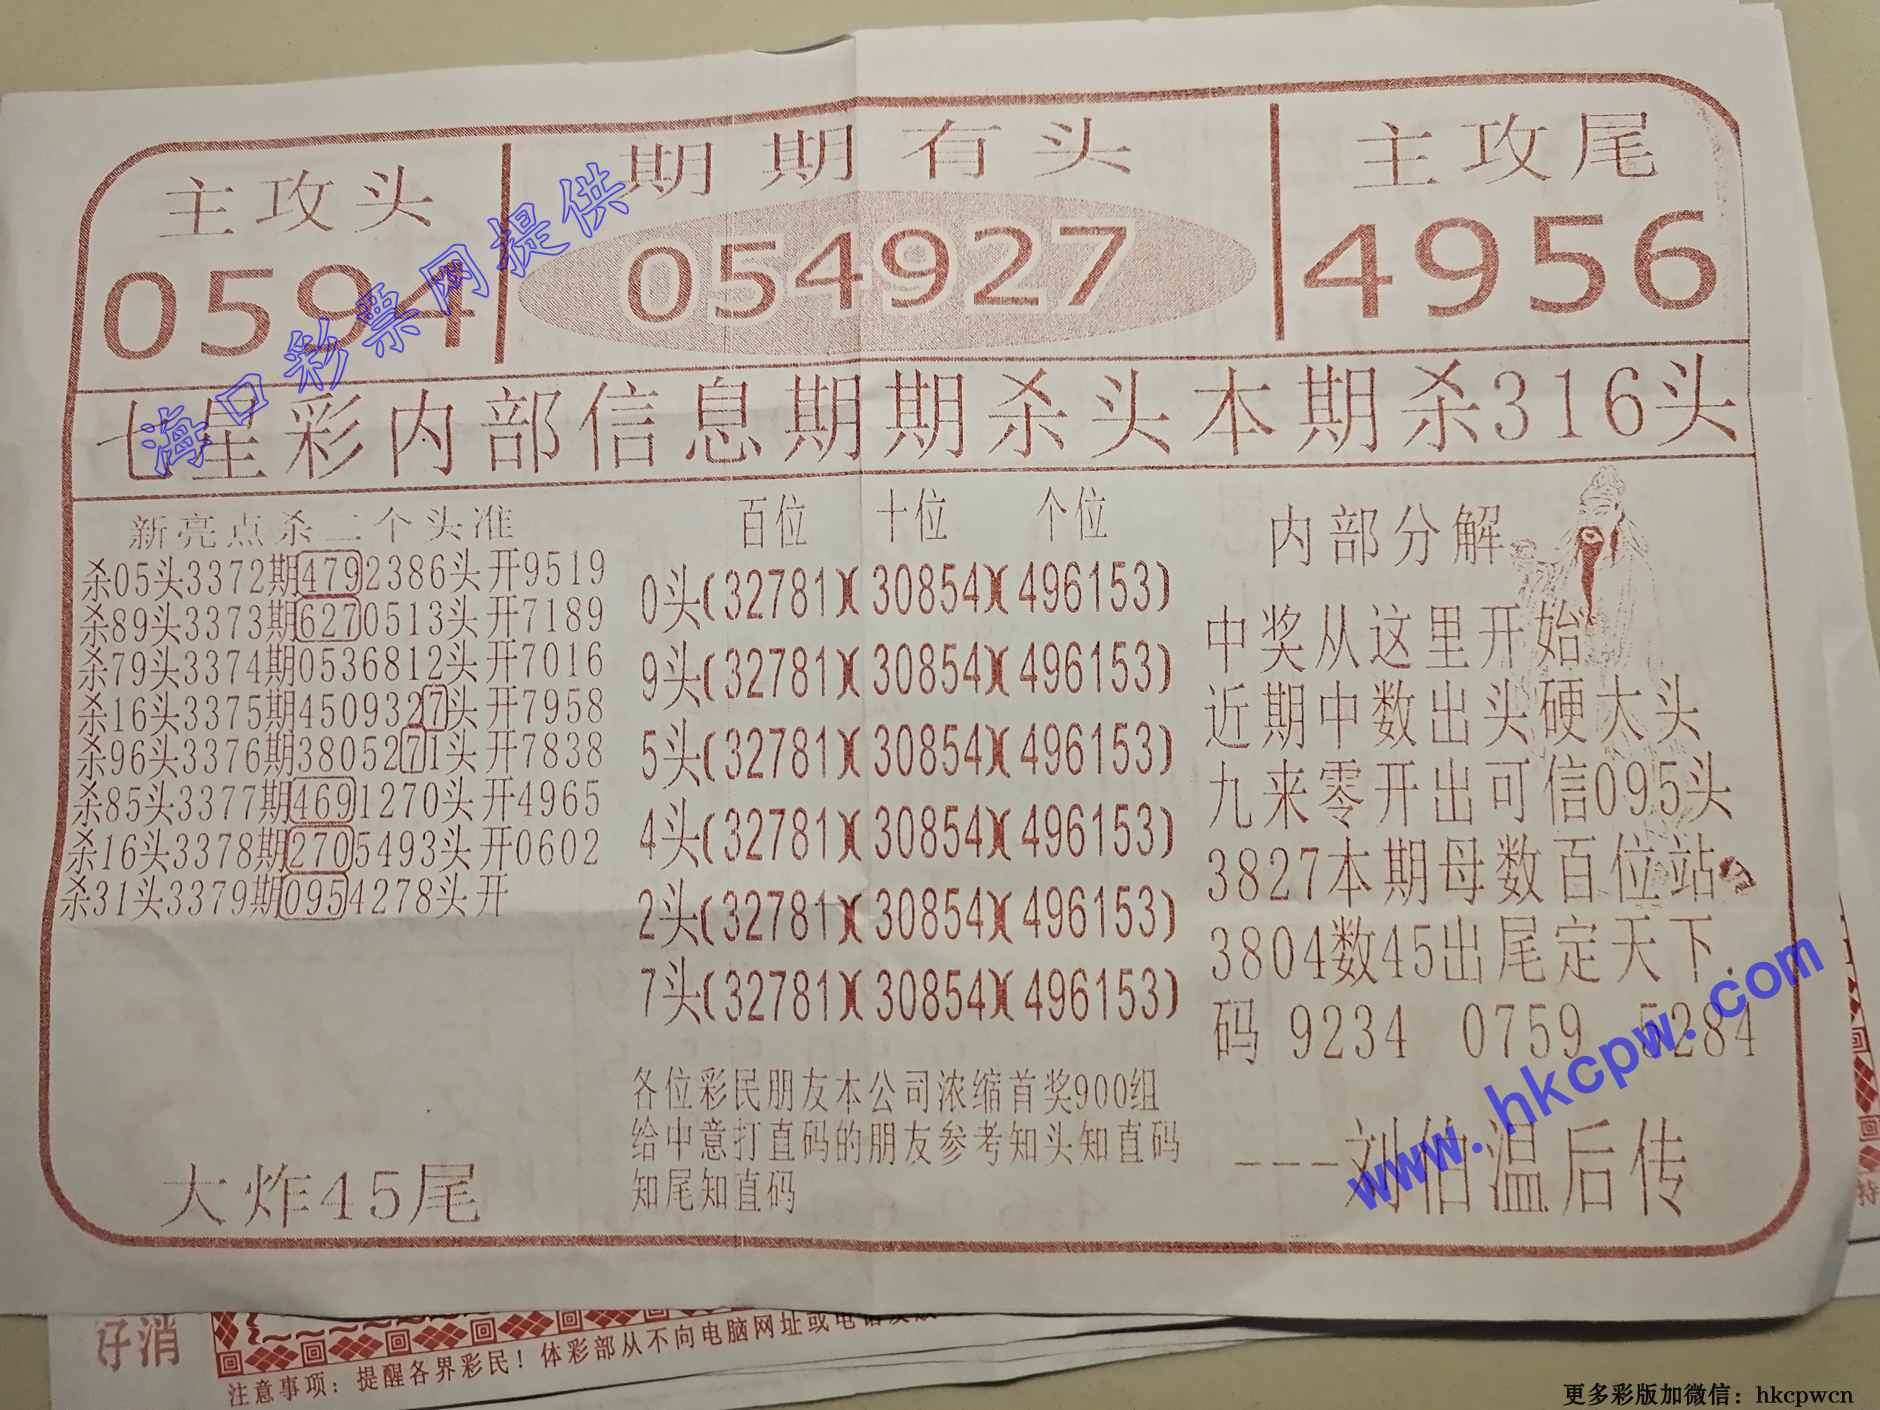 主攻头
期期有头
主攻尾
0594
054927
4956
海口彩票网提供
七星彩内部信息期期杀头本期杀316头
新亮点杀二个头准
杀05头3372期4792386头开9519
杀89头3373期6270513头开7189
杀79头3374期0536812头开7016
杀16头3375期4509327头开7958
杀96头3376期3805271头开7838
杀85头3377期4691270头开4965
杀16头3378期2705493头开0602
杀31头3379期0954278头开
大炸45尾
百位 十位 个位
0头(32781)(30854)(496153)
9头(32781)(30854)(496153)
5头(32781)(30854)(496153)
4头(32781)(30854)(496153)
2头(32781)(30854)(496153)
7头(32781)(30854)(496153)
各位彩民朋友本公司浓缩首奖900组
给中意打直码的朋友参考知头知直码
知尾知直码
内部分解
中奖从这里开始
近期中数出头硬太头
九来零开出可信095头
3827本期母数百位站
3804数45出尾定天下.
码 9234 0759 5284
---刘伯温后传
www.hkcpw.com
好消
注意事项：提醒各界彩民！体彩部从不向电脑网址或电话
持
更多彩版加微信：hkcpwcn